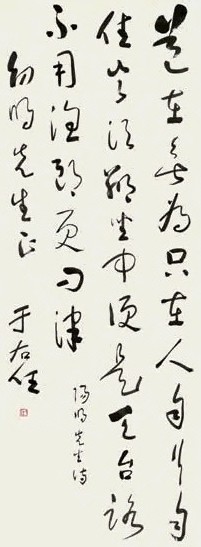 道在無為只在人自行自
住豈須鄰坐中便是天台路
不用漁郎更問津
陽明先生詩
幼明先生正
于右任